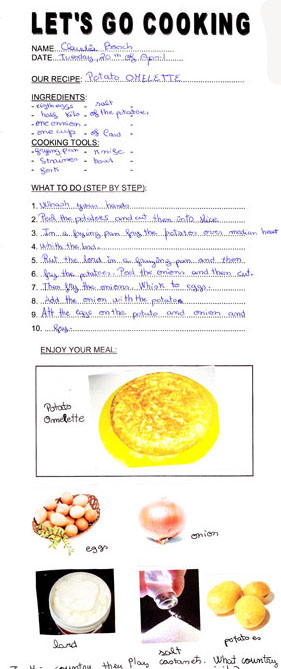 LET'S GO COOKING
NAME Claudia Bosch
DATE Tuesday, 20th of April
OUR RECIPE: Potato OMELETTE
INGREDIENTS:
- eggs - salt
- half kilo - of the potatoes
- one onion
- one cup - of
COOKING TOOLS:
- frying pan - knife
- strainer - bowl
- fork
WHAT TO DO (STEP BY STEP):
1. Whash your hands
2. Peel the potatoes and cut them into slice
3. In a frying pan fry the potatoes over median heat
4. With the
5. Put the in a frying pan and then
6. fry the potatoes. Peel the onions and then cut.
7. Then fry the onions. Whisk to eggs.
8. Add the onion with the potatoe
9. the eggs on the potato and onion and
10. fry.
ENJOY YOUR MEAL:
Potato
Omelette
eggs
onion
salt
potatoes
country they play castanets. What country